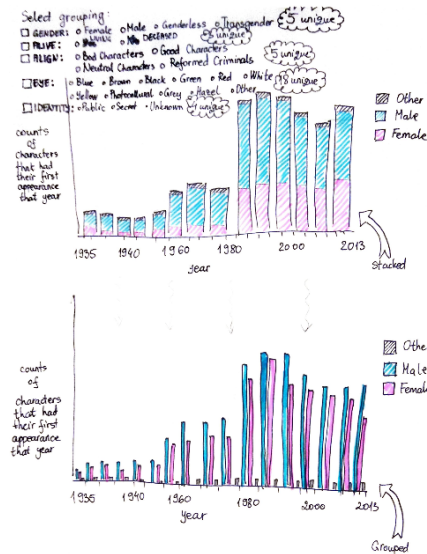 Select grouping:
GENDER: Female Male Genderless Transgender 5 unique
ALIVE: LIVING DECEASED unique
ALIGN: Bad Characters Good Characters 5 unique
Neutral Characters Reformed Criminals
EYE: Blue Brown Black Green Red White unique
Yellow Photocultural Grey Hazel Other
IDENTITY: Public Secret Unknown unique
counts
of
characters
that had
their first
appearance
that year
Other
Male
Female
1935 1940 1960 1980 2000 2013
Year
Stacked
counts
of
characters
that had
their first
appearance
that year
Othe
Male
Femal
1935 1940 1960 1980 2000 2013
Year
Grouped